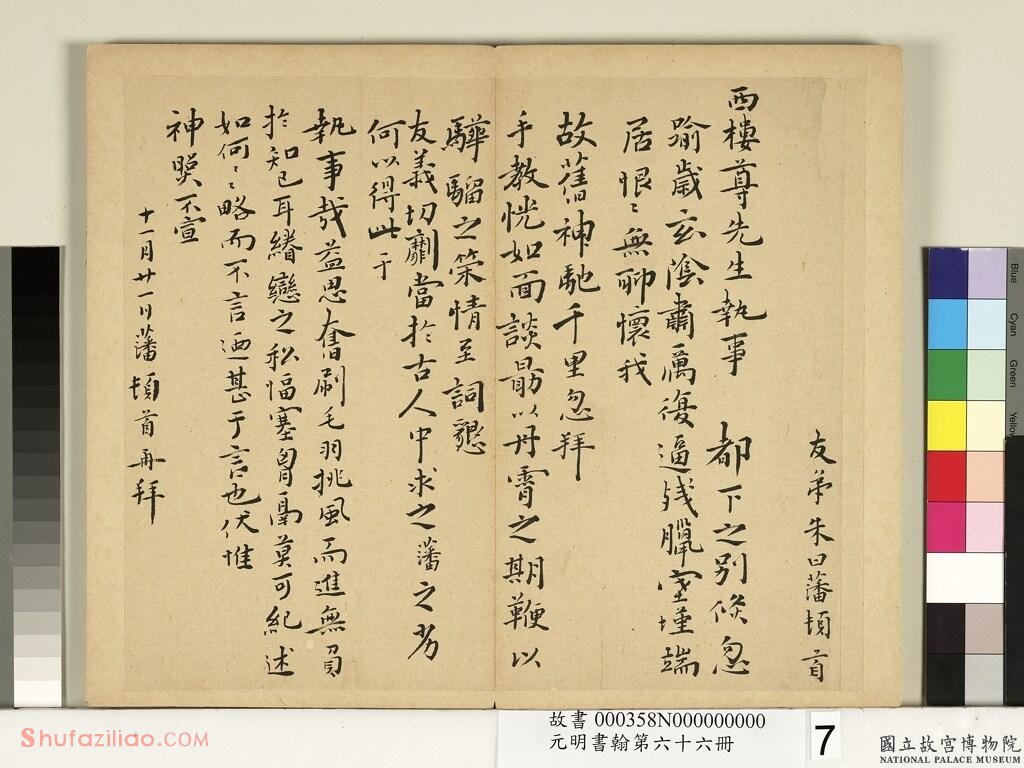 友弟朱曰藩頓首
西樓尊先生執事 都下之別倏忽
踰歲玄陰肅厲復逼殘臘室墐端
居恨〻無聊懷我
故舊神馳千里忽拜
手教恍如面談勗以丹霄之期鞭以
驊騮之策情至詞懇
友義切劘當於古人中求之藩之劣
何以得此于
執事哉益思奮刷毛羽挑風而進無負
於知己耳繾戀之私愊塞胷鬲莫可紀述
如何〻〻略而不言迺甚于言也伏惟
神炤不宣
十一月廿一日藩頓首再拜
Shufaziliao.COM
故書 000358N000000000
元明書翰第六十六冊
7
國立故宮博物院
NATIONAL PALACE MUSEUM
Blue
Cyan
Green
Yellow